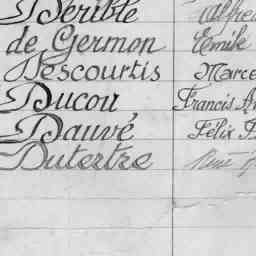 Derible Alfred
de Germon Emile
Descourtis Marce
Ducou Francis A
Dauvé Félix
Dutertre René